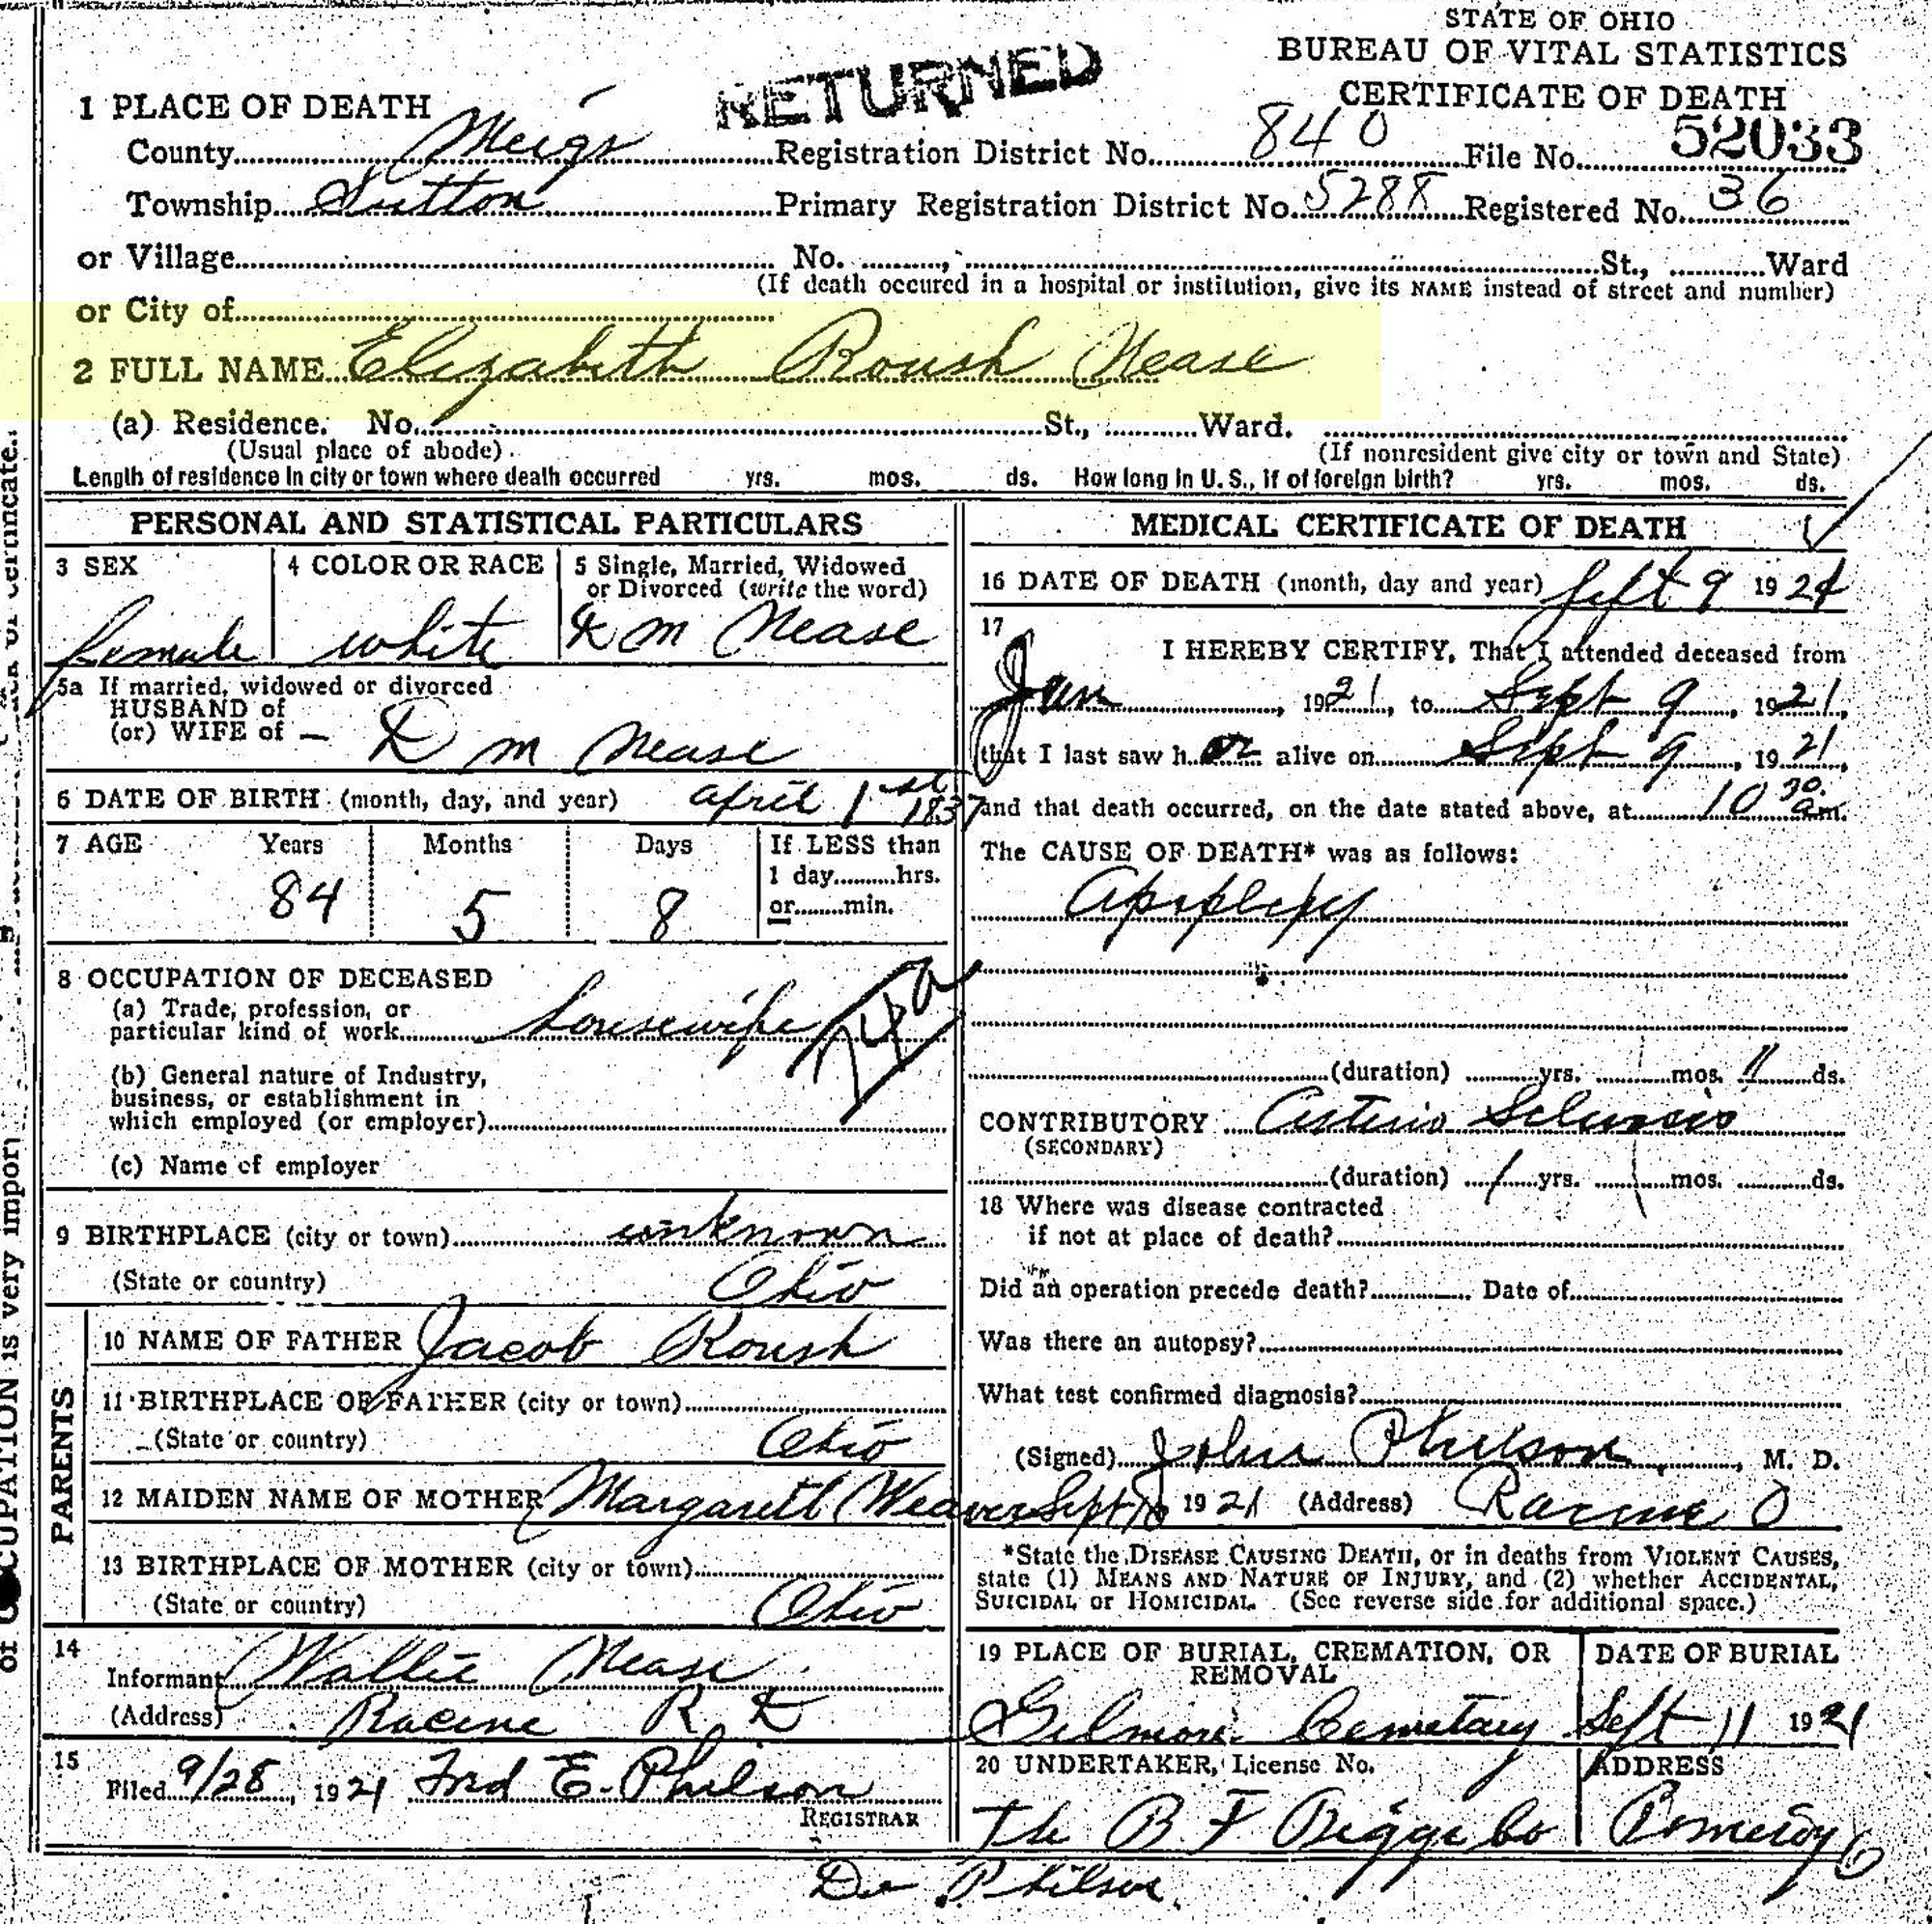 STATE OF OHIO
BUREAU OF VITAL STATISTICS
CERTIFICATE OF DEATH
RETURNED
1 PLACE OF DEATH
County Meigs Registration District No. 840 File No. 52033
Township Sutton Primary Registration District No. 5288 Registered No. 36
or Village No. , St., Ward
(If death occured in a hospital or institution, give its NAME instead of street and number)
or City of
2 FULL NAME Elizabeth Roush Nease
(a) Residence. No. St., Ward.
(Usual place of abode) (If nonresident give city or town and State)
Length of residence in city or town where death occurred yrs. mos. ds. How long in U. S., if of foreign birth? yrs. mos. ds.
PERSONAL AND STATISTICAL PARTICULARS
3 SEX
female
4 COLOR OR RACE
white
5 Single, Married, Widowed
or Divorced (write the word)
D m Nease
5a If married, widowed or divorced
HUSBAND of
(or) WIFE of — D m Nease
6 DATE OF BIRTH (month, day, and year) april 1st 1837
7 AGE Years Months Days If LESS than
1 day hrs.
84 5 8 or min.
8 OCCUPATION OF DECEASED
(a) Trade, profession, or
particular kind of work housewife
(b) General nature of Industry,
business, or establishment in
which employed (or employer)
(c) Name of employer
9 BIRTHPLACE (city or town) unknown
(State or country) Ohio
PARENTS
10 NAME OF FATHER Jacob Roush
11 BIRTHPLACE OF FATHER (city or town)
(State or country) Ohio
12 MAIDEN NAME OF MOTHER Margarett Weaver
13 BIRTHPLACE OF MOTHER (city or town)
(State or country) Ohio
14
Informant Wallie Nease
(Address) Racine R D
15
Filed 9/28, 1921 Fred E. Philson
REGISTRAR
MEDICAL CERTIFICATE OF DEATH
16 DATE OF DEATH (month, day and year) Sept 9 1921
17
I HEREBY CERTIFY, That I attended deceased from
Jan, 1921, to Sept 9, 1921,
that I last saw her alive on Sept 9, 1921,
and that death occurred, on the date stated above, at 10 30 am.
The CAUSE OF DEATH* was as follows:
apoplexy
(duration) yrs. mos. 11 ds.
CONTRIBUTORY
(SECONDARY)
(duration) 1 yrs. mos. ds.
18 Where was disease contracted
if not at place of death?
Did an operation precede death? Date of
Was there an autopsy?
What test confirmed diagnosis?
(Signed) John Philson, M. D.
Sept 10 1921 (Address) Racine O
*State the DISEASE CAUSING DEATH, or in deaths from VIOLENT CAUSES,
state (1) MEANS AND NATURE OF INJURY, and (2) whether ACCIDENTAL,
SUICIDAL or HOMICIDAL. (See reverse side for additional space.)
19 PLACE OF BURIAL, CREMATION, OR
REMOVAL
Gilmore Cemetary
DATE OF BURIAL
Sept 11 1921
20 UNDERTAKER, License No.
The B F Biggs Co
ADDRESS
Pomeroy O
Dr Philson
of OCCUPATION is very impor
of certificate.